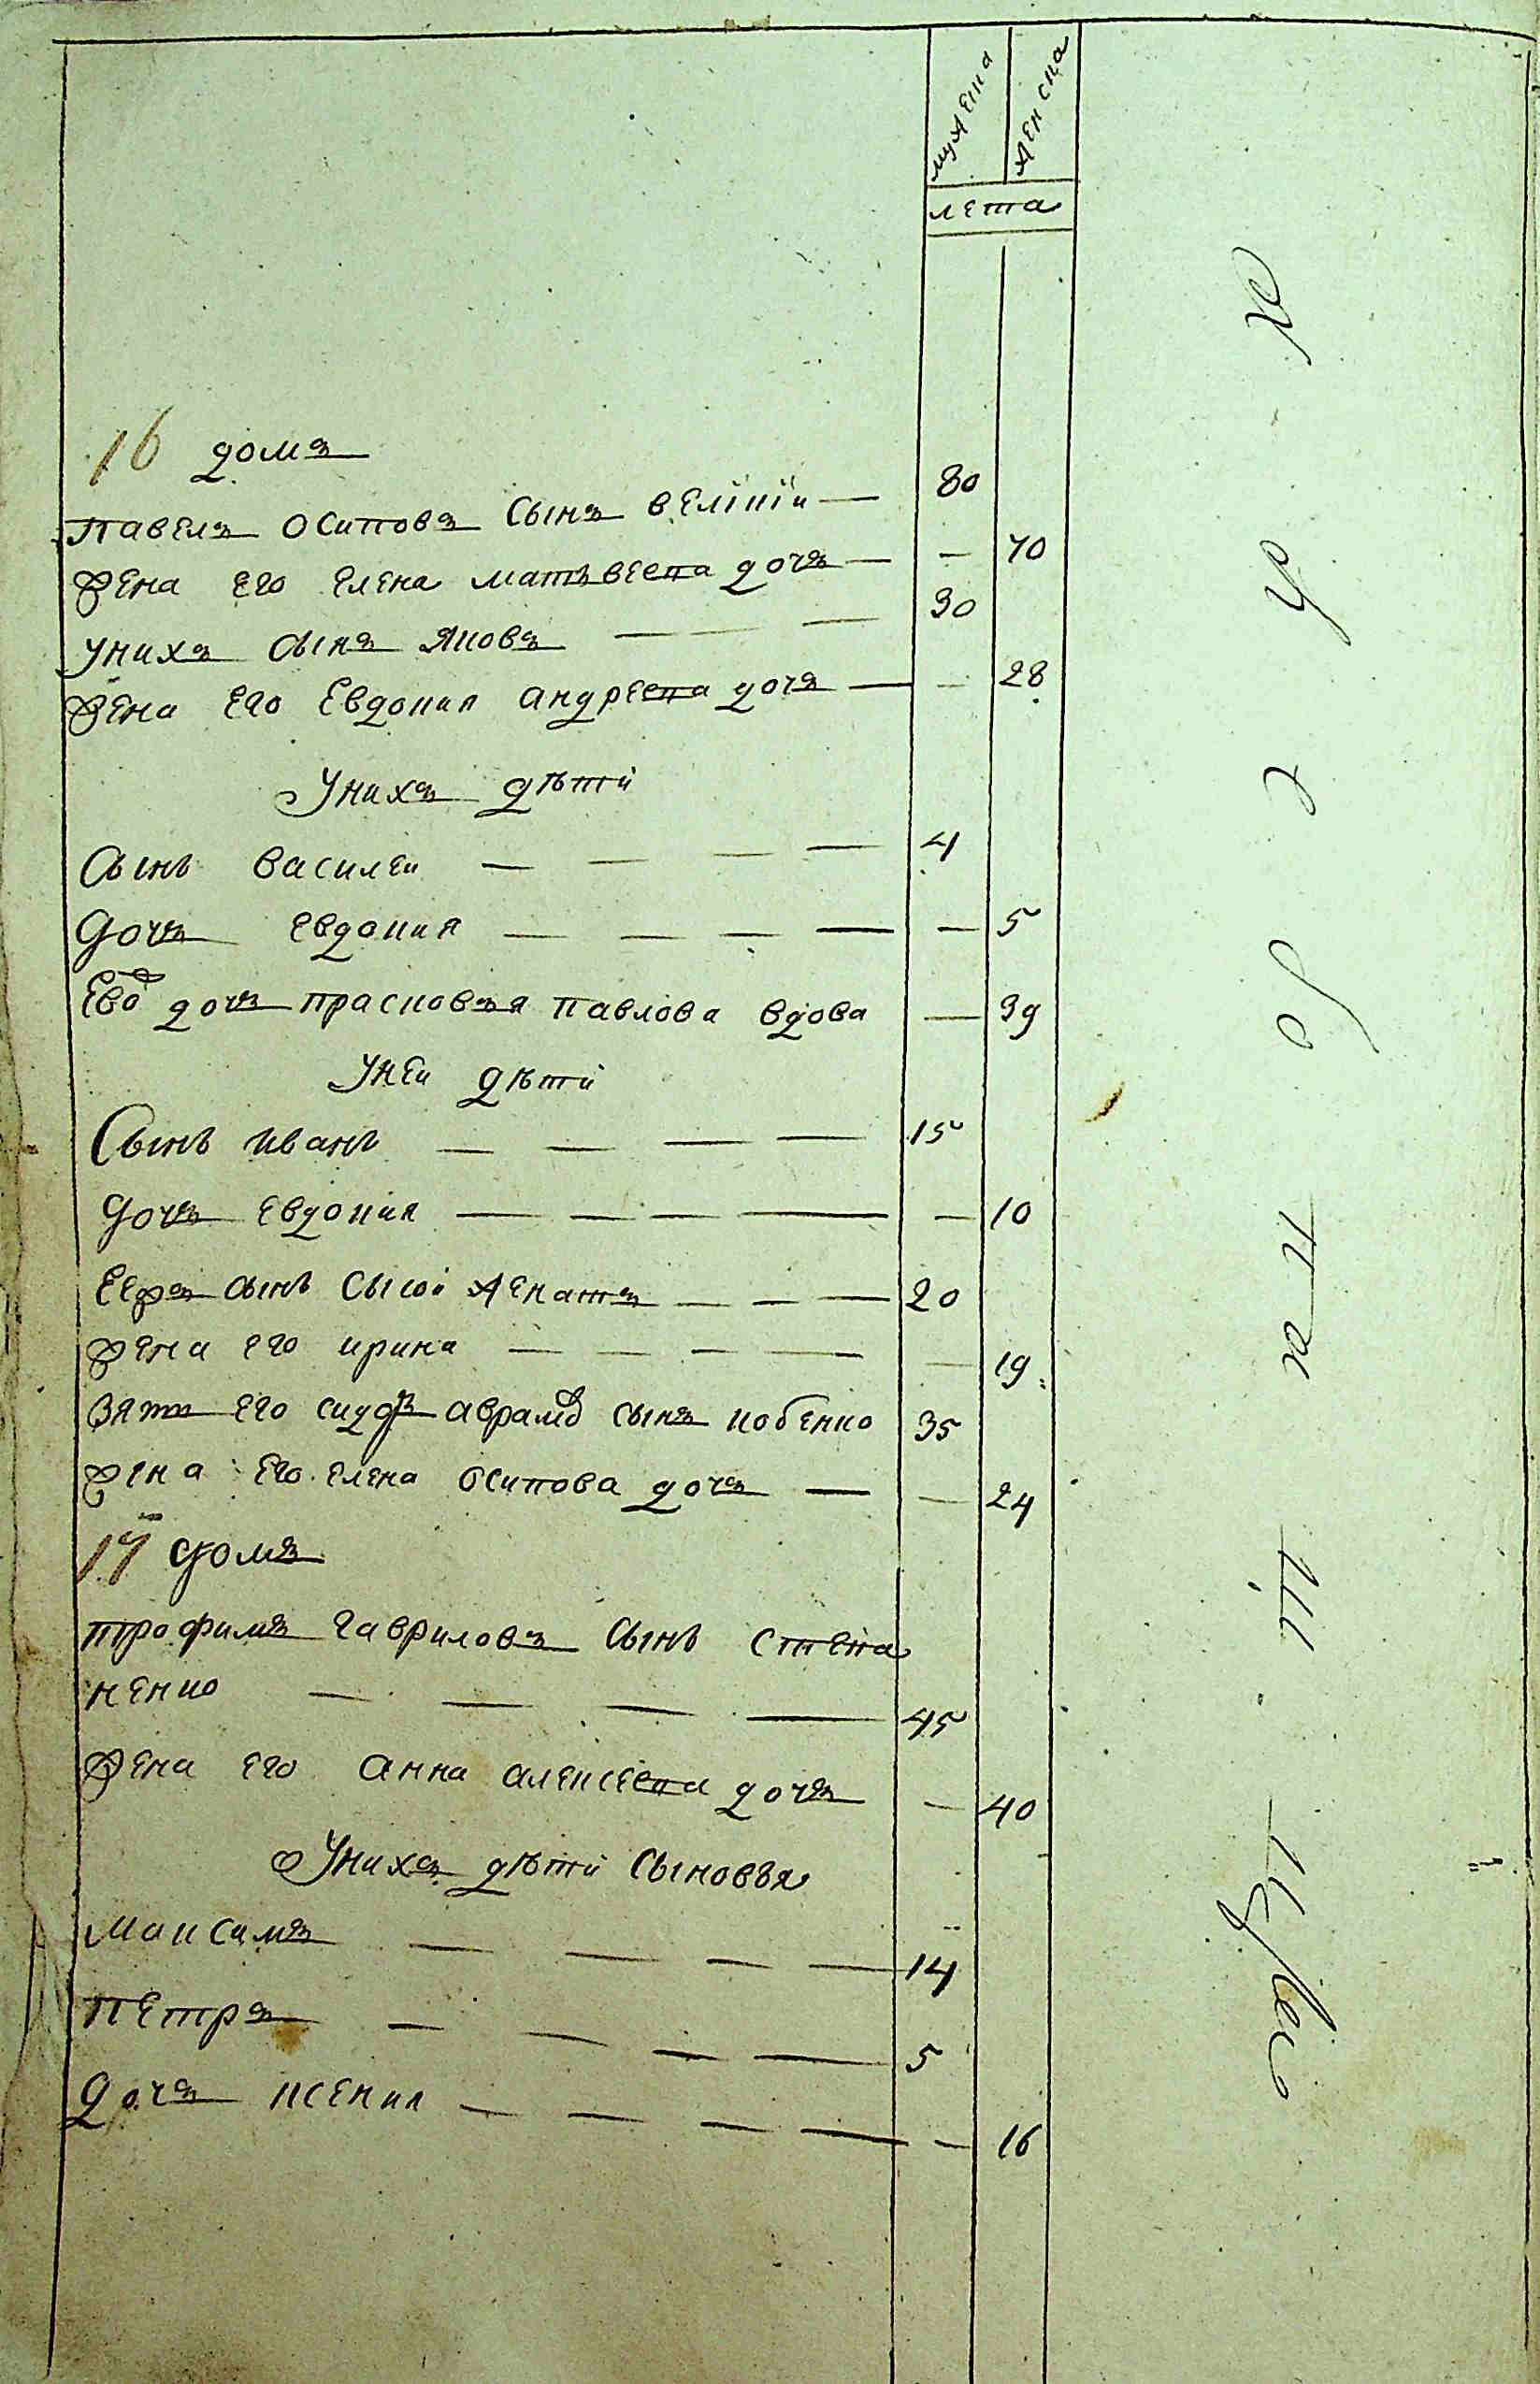 мужеска женска
лета
16 домъ
Павелъ Осиповъ сынъ Великіи — 80
жена его Елена Матъвеева дочъ — — 70
унихъ сынъ Яковъ — — 30
жена его Евдокия Андреева дочъ — — 28
Унихъ дѣти
Сынъ Василеи — — — — 4
Дочъ Евдокия — — — — — 5
Его дочъ Прасковъя Павлова вдова — 39
Унеи дѣти
Сынъ Иванъ — — — — 15
Дочъ Евдокия — — — — — 10
Ееже сынъ Сысои женатъ — — — 20
жена его Ирина — — — — — 19
Зять его Сидоръ Аврамовъ сынъ Кобенко 35
жена его Елена Осипова дочъ — — 24
17 домъ
Трофимъ Гавриловъ сынъ Степа
ненко — — — — 45
жена его Анна Алексеева дочъ — 40
Унихъ дѣти сыновъя
Максимъ — — — — 14
Петръ — — — — 5
Дочъ Ксения — — — — — 16